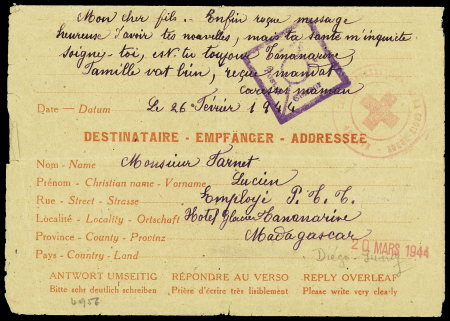 Mon cher fils.. Enfin reçue message
heureuse d'avoir tes nouvelles, mais ta santé m'inquiète
soigne-toi, es-tu toujours Tananarive
Famille vat bien, reçue mandat
caresses maman
Date - Datum Le 26 Février 1944
DESTINATAIRE - EMPFÄNGER - ADDRESSEE
Nom - Name Monsieur Farnet
Prénom - Christian name - Vorname Lucien
Rue - Street - Strasse Employé P.T.T.
Localité - Locality - Ortschaft Hotel Glacier Tananarive
Province - County - Provinz Madagascar
Pays - Country - Land
20 MARS 1944
Diego-Suarez
ANTWORT UMSEITIG RÉPONDRE AU VERSO REPLY OVERLEAF
Bitte sehr deutlich schreiben Prière d'écrire très lisiblement Please write very clearly